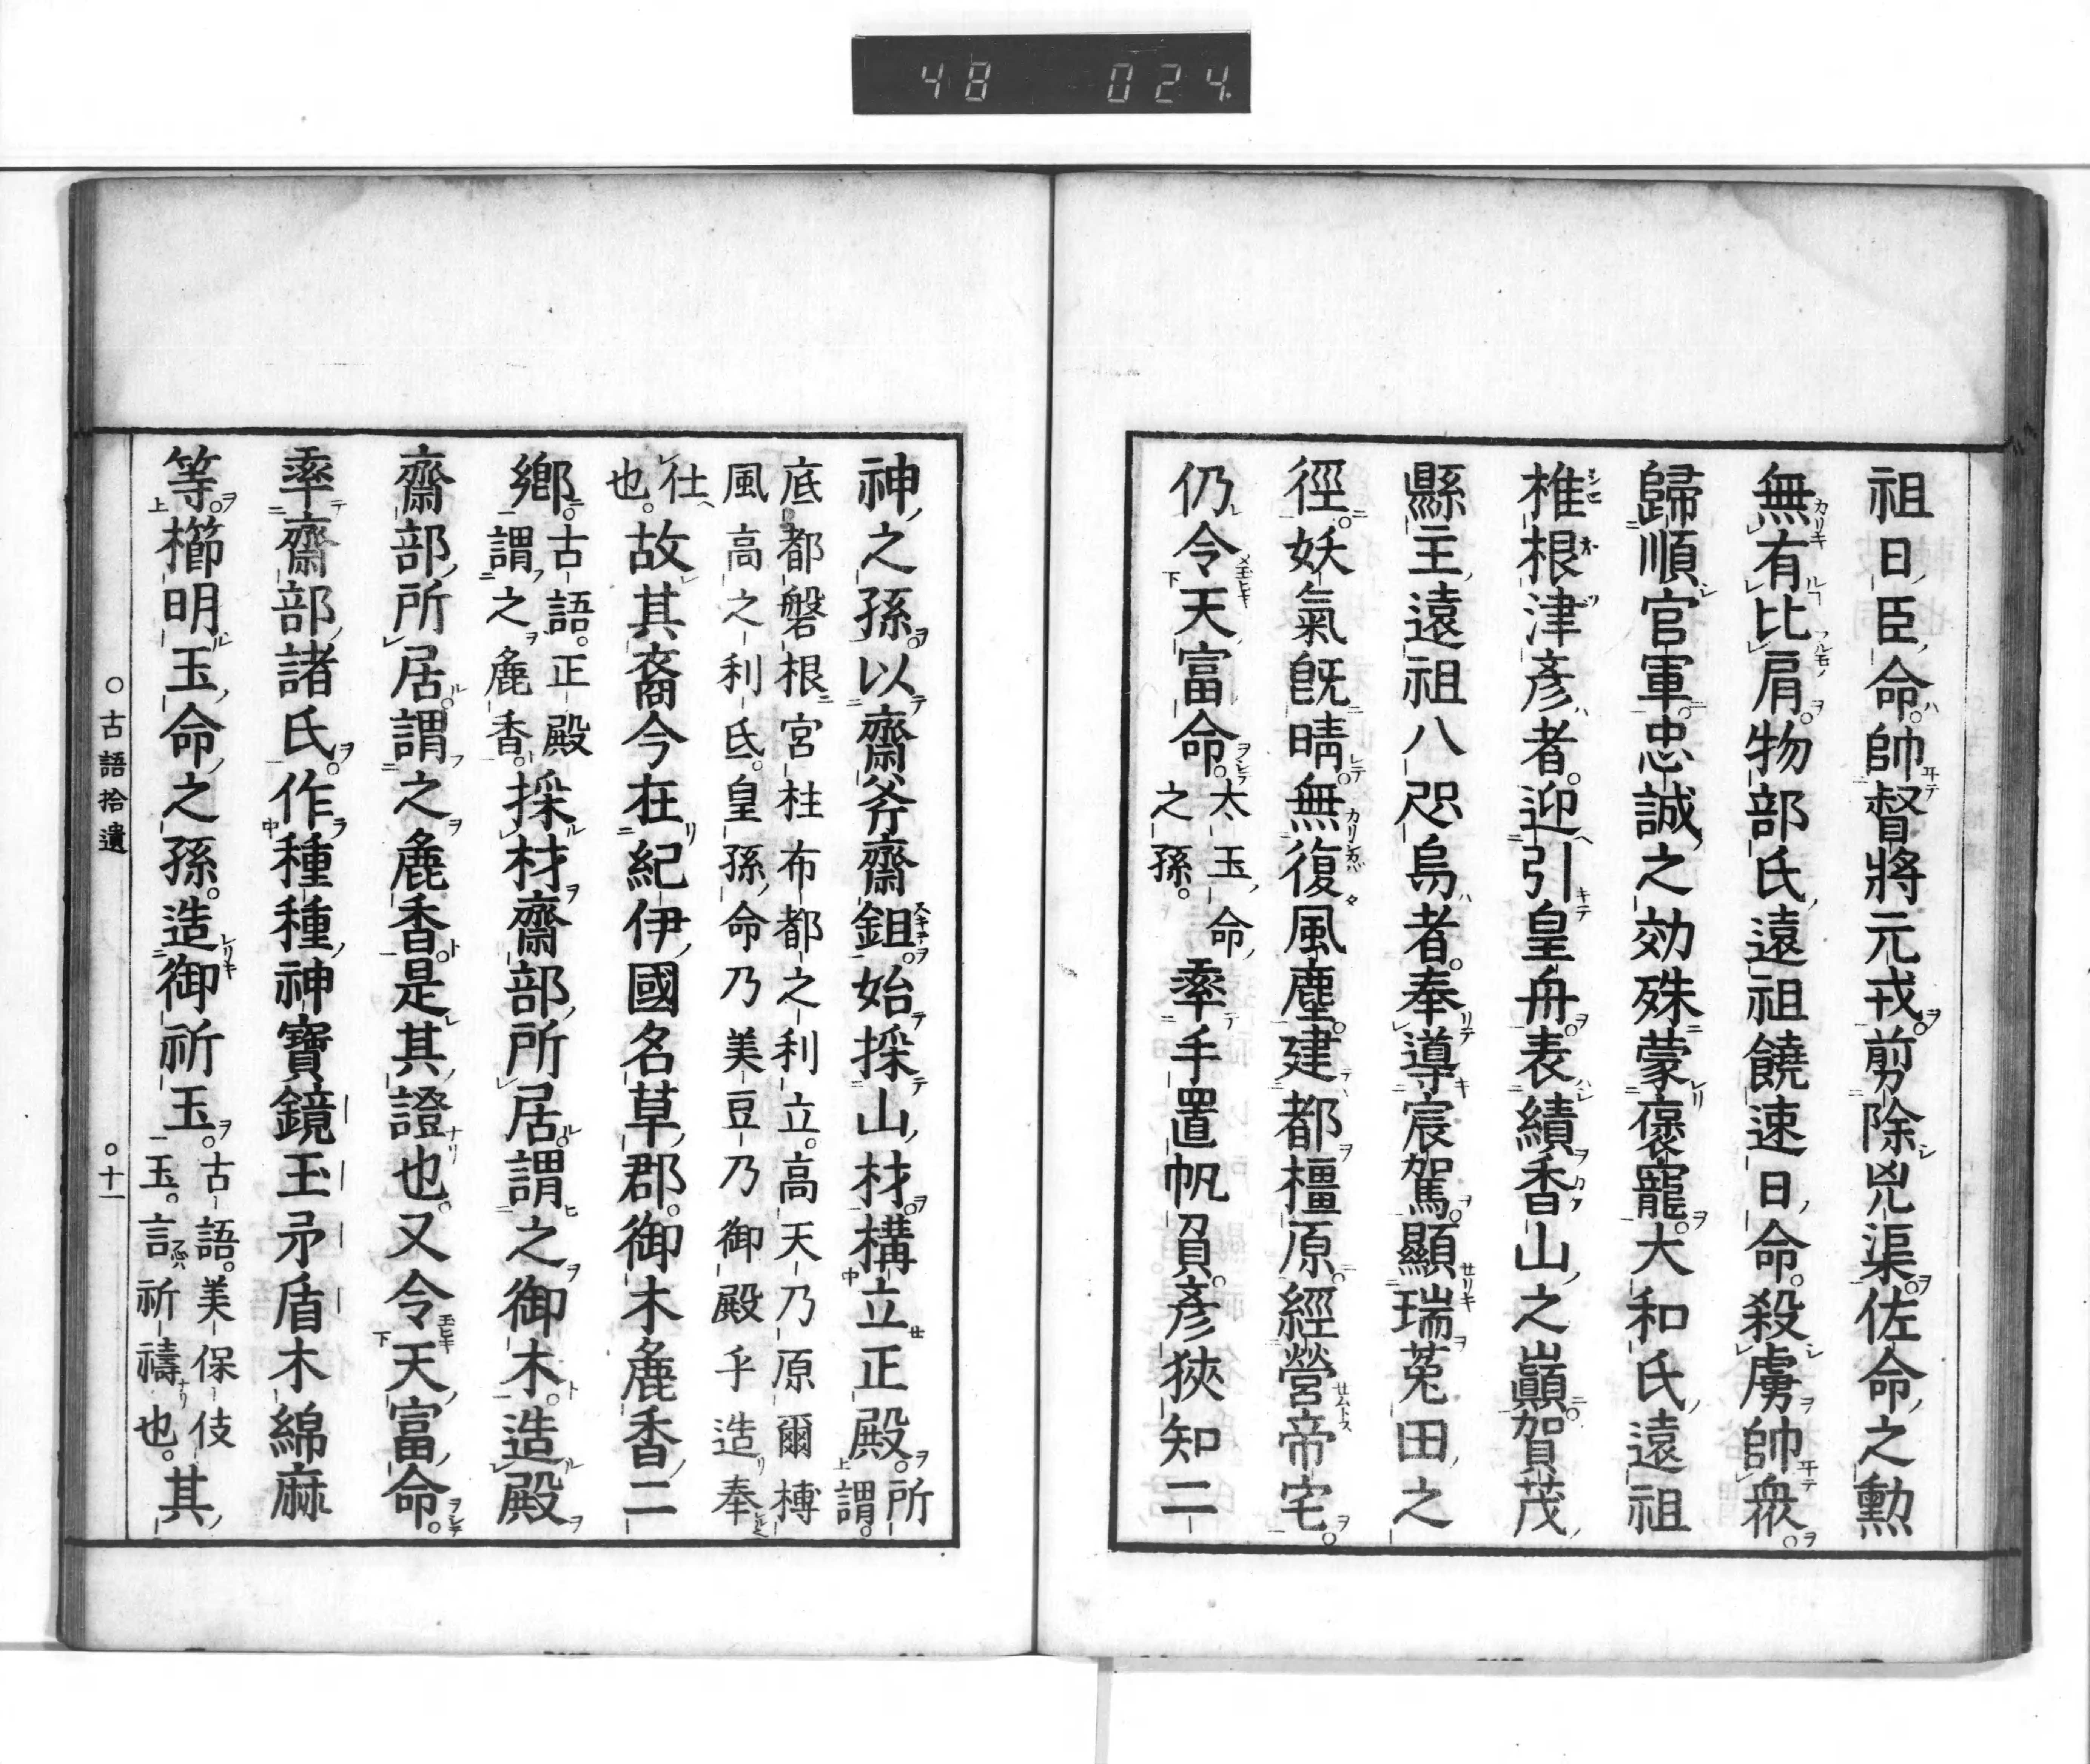 48 024
祖日臣命帥督將元戎剪除兇渠佐命之勲
無有比肩物部氏遠祖饒速日命殺虜帥衆
歸順官軍忠誠之効殊蒙褒寵大和氏遠祖
椎根津彦者迎引皇舟表績香山之巓賀茂
縣主遠祖八咫烏者奉導宸駕顯瑞菟田之
徑妖氣既晴無復風塵建都橿原經營帝宅
仍令天富命太玉命之孫率手置帆負彦狹知二
神之孫以齋斧齋鉏始採山材構立正殿所謂
底都磐根宮柱布都之利立高天乃原爾摶
風高之利氐皇孫命乃美豆乃御殿乎造奉
仕也故其裔今在紀伊國名草郡御木麁香二
鄉古語正殿謂之麁香採材齋部所居謂之御木造殿
齋部所居謂之麁香是其證也又令天富命
率齋部諸氏作種種神寶鏡玉矛盾木綿麻
等櫛明玉命之孫造御祈玉古語美保伎玉言祈禱也其
○古語拾遺 ○十一